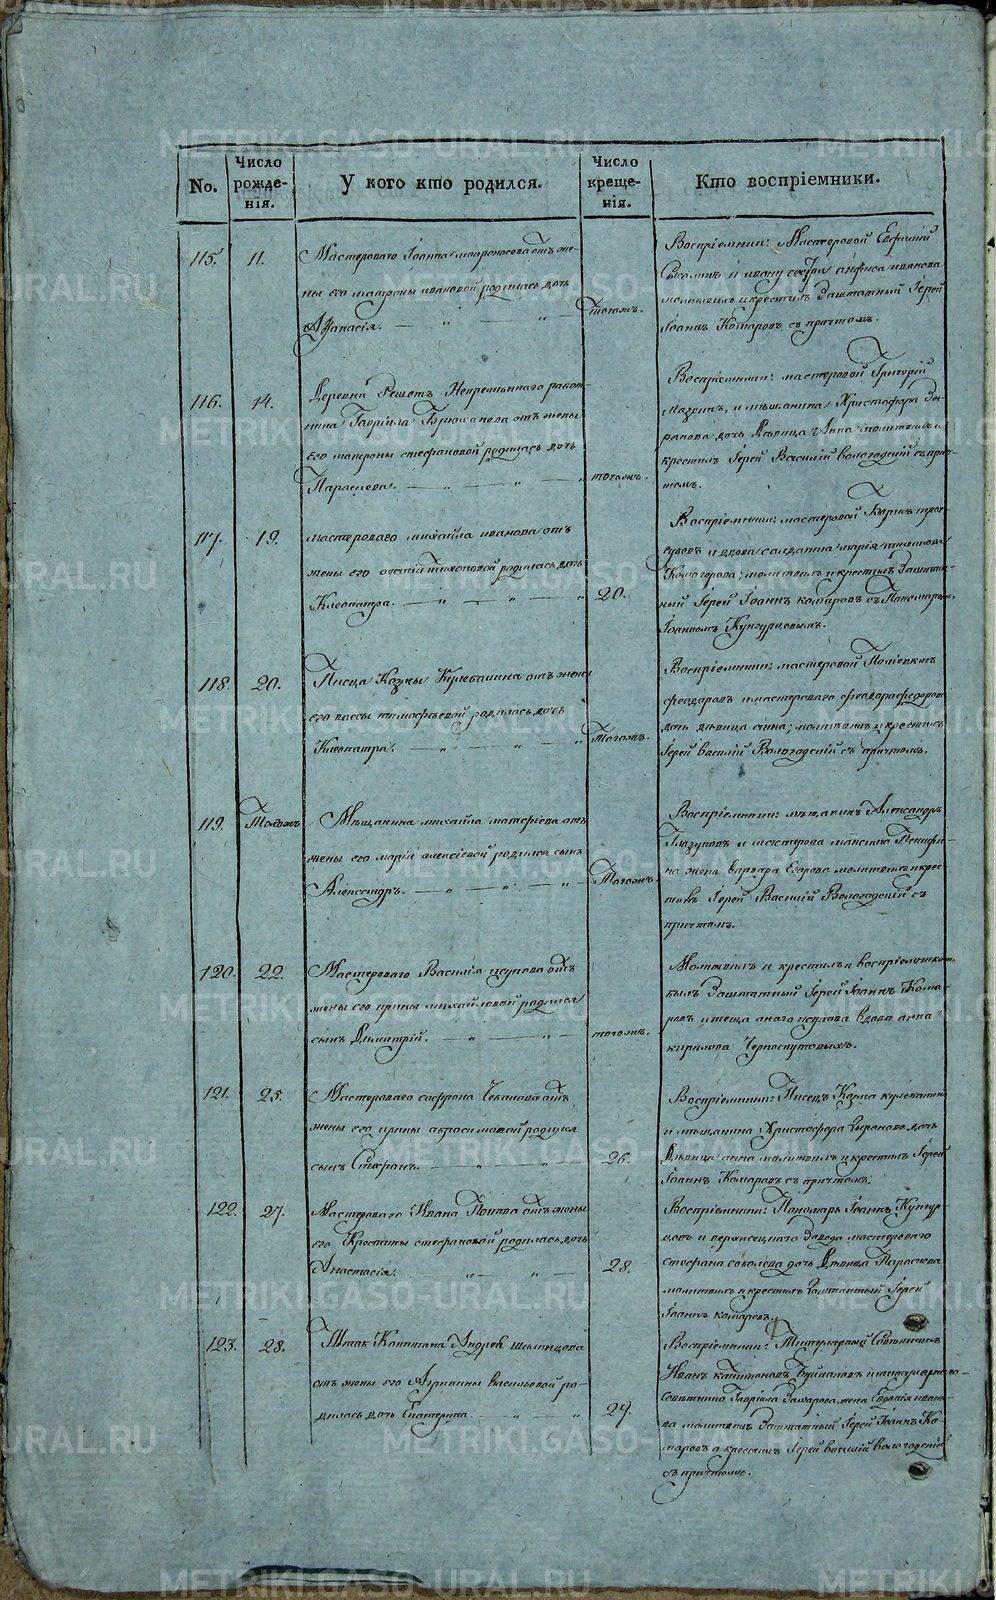 No.
Число рожде-нія.
У кого кто родился.
Число креще-нія.
Кто воспріемники.
115.
11.
Мастероваго Іоанна отъ же-
ны его матроны ивановой родилась дочь
Афанасія.
Тогожъ.
Воспріемники: Мастеровой Евфимій
и ивану сестра анфиса иванова
молитвилъ и крестилъ Заштатный Іерей
Іоаннъ Комаровъ съ причтомъ.
116.
14.
Деревни Решетъ Непременнаго работ-
ника Гавріила отъ жены
его матроны стефановой родилась дочь
Параскева.
тогожъ.
Воспріемники: мастеровой Григорій
и мѣщанина Христофора
дочь Дѣвица Анна молитвилъ и
крестилъ Іерей Василій вологодскій съ прич-
томъ.
117.
19.
мастероваго михайла иванова отъ
жены его родилась дочь
Клеопатра.
20.
Воспріемники: мастеровой
и вдова солдатка марія
Комогорова; молитвилъ и крестилъ Заштат-
ный Іерей Іоаннъ комаровъ съ Пономаремъ
Іоанномъ Кунгурцовымъ.
118.
20.
Писца Козмы Кулебакина отъ жены
его вассы тимофѣевой родилась дочь
Клеопатра.
Тогожъ.
Воспріемники: мастеровой
феодоровъ и мастероваго феодора федорова
дочь дѣвица анна; молитвилъ и крестилъ
Іерей василій Вологодскій съ причтомъ.
119.
Тогожъ
Мѣщанина михайла матфіева отъ
жены его маріи алексіевой родился сынъ
Александръ.
Тогожъ.
Воспріемники: мѣщанинъ Александръ
Глазуновъ и мастерова максима
жена варвара Егорова молитвилъ и крес-
тилъ Іерей Василій Вологодскій съ
причтомъ.
120.
22.
Мастероваго Василія исупова отъ
жены его ирины михайловой родился
сынъ Димитрій.
тогожъ.
Молитвилъ и крестилъ и воспріемникомъ
былъ Заштатный Іерей Іоаннъ Кома-
ровъ и теща онаго исупова вдова анна
кирилова
121.
25.
Мастероваго сафрона Чеканова отъ
жены его ирины родился
сынъ Стефанъ.
26.
Воспріемники: Писецъ Козма кулебакинъ
и мѣщанина Христофора дочь
Дѣвица анна молитвилъ и крестилъ Іерей
Іоаннъ Комаровъ съ причтомъ.
122.
27.
Мастероваго Ивана Попова отъ жены
его стефановой родилась дочь
Анастасія.
28.
Воспріемники: Пономарь Іоаннъ Кунгур-
цовъ и верхисецкаго Завода мастероваго
стефана соболева дочь Дѣвица Параскева
молитвилъ и крестилъ Заштатный Іерей
Іоаннъ комаровъ.
123.
28.
Штабъ Капитана Андрея
отъ жены его Агрипины васильевой ро-
дилась дочь Екатерина.
29.
Воспріемники: Титулярный Совѣтникъ
Иванъ капитоновъ и титулярнаго
совѣтника Гавріила Захарова жена Евдокія ивано-
ва молитвилъ Заштатный Іерей Іоаннъ Ко-
маровъ а крестилъ Іерей василій вологодскій
съ причтомъ.
METRIKI.GASO-URAL.RU